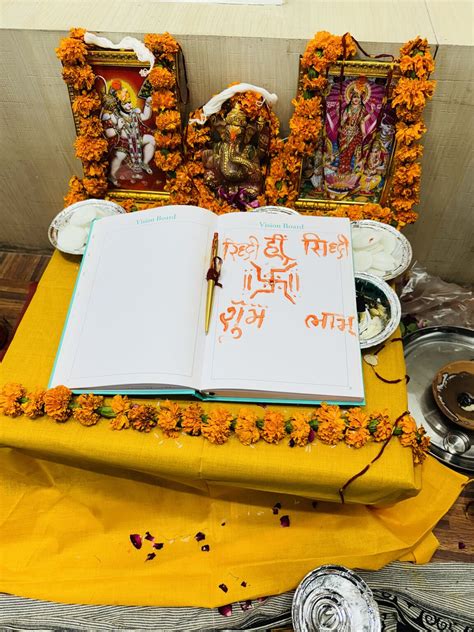 Vision Board
Vision Board
रिध्दी ह्रीं सिध्दी
शुभ लाभ